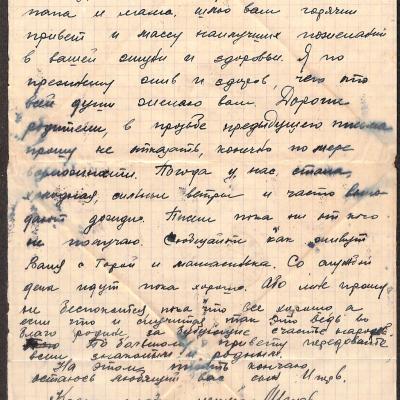 папа и мама, шлю вам горячий
привет и массу наилучших пожеланий
в вашей жизни и здоровьи. Я по
прежнему жив и здоров, чего от
всей души желаю вам. Дорогие
родители, в просьбе предыдущего письма
прошу не отказать, конечно по мере
возможности. Погода у нас, стала
холодная, сильные ветры и часто
дают дожди. Писем пока ни от кого
не получаю. Сообщайте как живут
Ваня с Торой и Со службой
дела идут пока хорошо. Обо мне прошу
не беспокойтесь, пока что все хорошо а
если что и случится так это ведь во
благо родине за будущее счастье народов
По большому привету передавайте
всем знакомым и родным.
На этом кончаю
остаюсь любящий вас сын